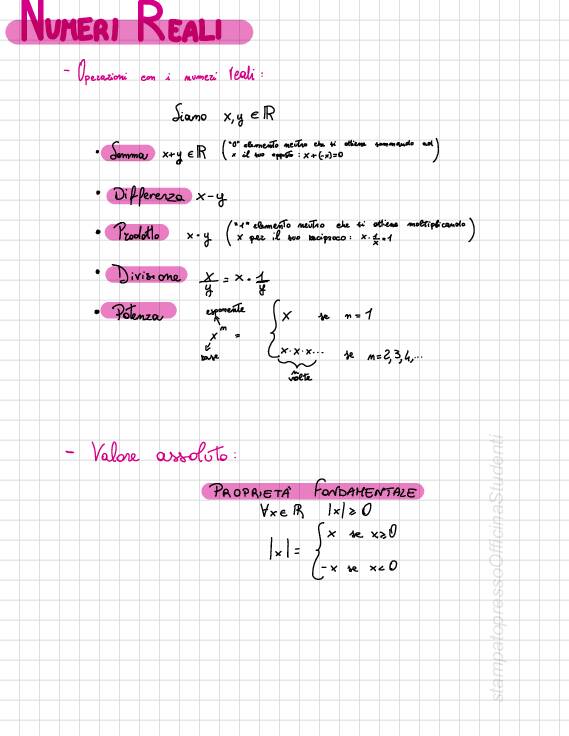 NUMERI REALI
- Operazioni con i numeri reali:
Siano x, y ∈ ℝ
• Somma x+y ∈ ℝ ("0" elemento neutro che si ottiene sommando ad
x il suo opposto: x+(-x)=0)
• Differenza x-y
• Prodotto x·y ("1" elemento neutro che si ottiene moltiplicando
x per il suo reciproco: x·1/x=1)
• Divisione x/y = x·1/y
• Potenza
esponente
x^n = { x se n=1
base
x·x·x... se n=2,3,4,...
n volte
- Valore assoluto:
PROPRIETÀ FONDAMENTALE
∀x∈ℝ |x|≥0
|x|= { x se x≥0
-x se x<0
stampatopressoOfficinaStudenti